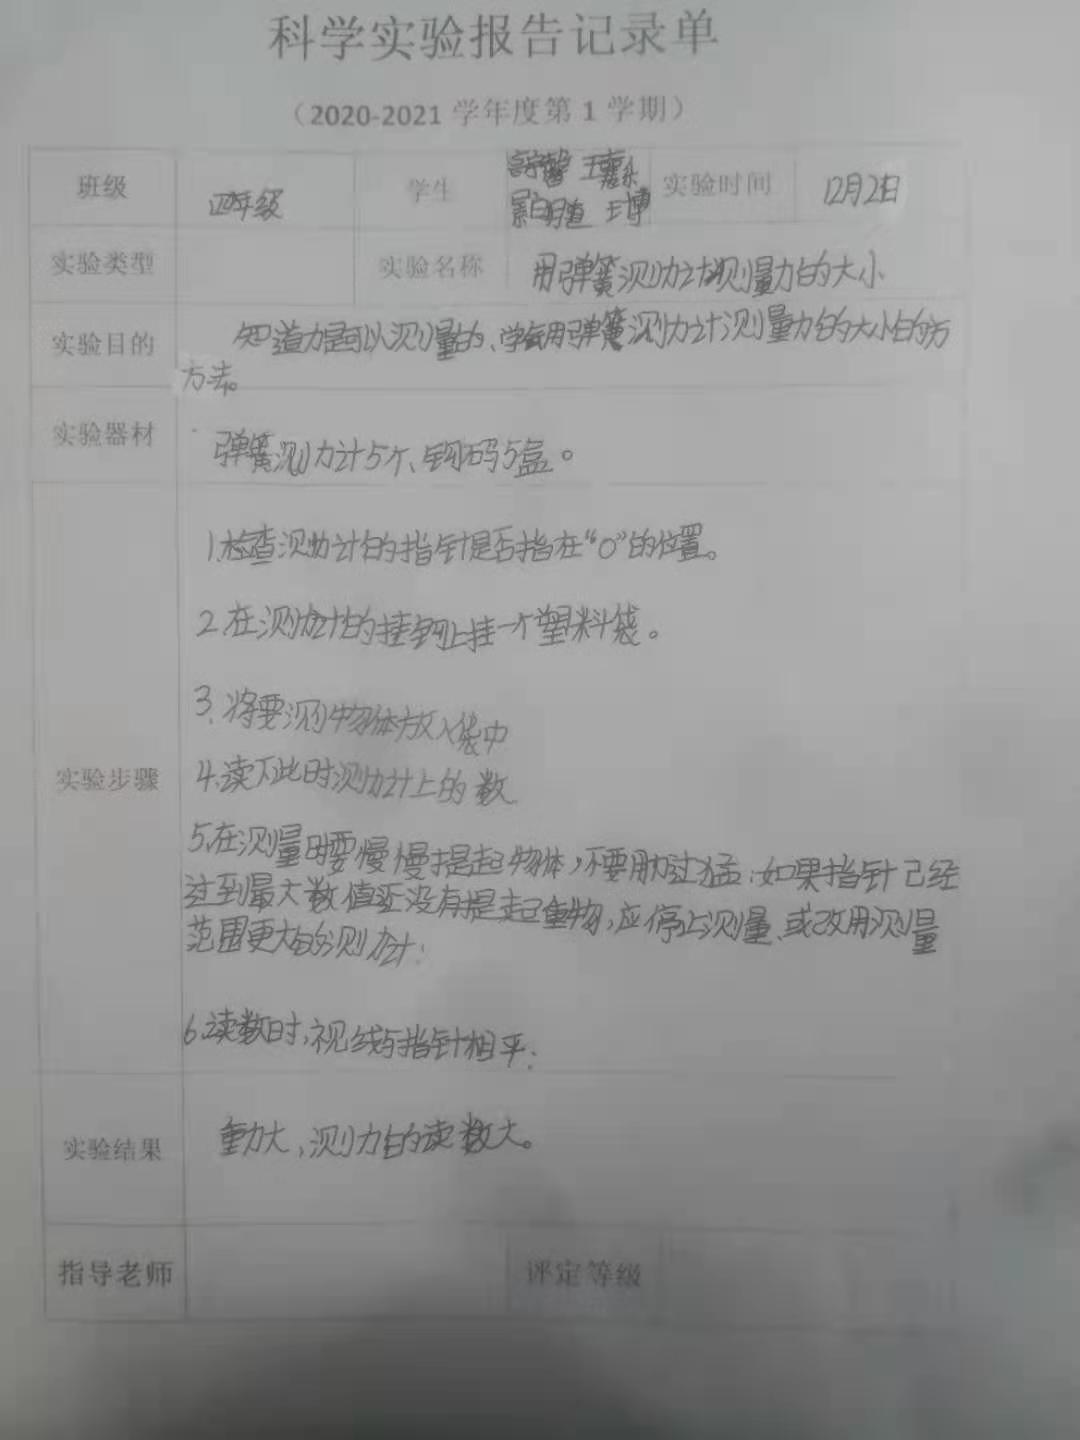 科学实验报告记录单
（2020-2021 学年度第 1 学期）
班级 四年级 学生 王嘉乐 王博 实验时间 12月2日
实验类型 实验名称 用弹簧测力计测量力的大小
实验目的 知道力是可以测量的、学会用弹簧测力计测量力的大小的方
方法。
实验器材 弹簧测力计5个、钩码5盒。
实验步骤
1.检查测力计的指针是否指在“0”的位置。
2.在测力计的挂钩上挂一个塑料袋。
3.将要测物体放入袋中
4.读下此时测力计上的数
5.在测量时要慢慢提起物体，不要用力过猛；如果指针已经
达到最大数值还没有提起重物，应停止测量、或改用测量
范围更大的测力计；
6.读数时，视线与指针相平；
实验结果 重力大，测力的读数大。
指导老师 评定等级